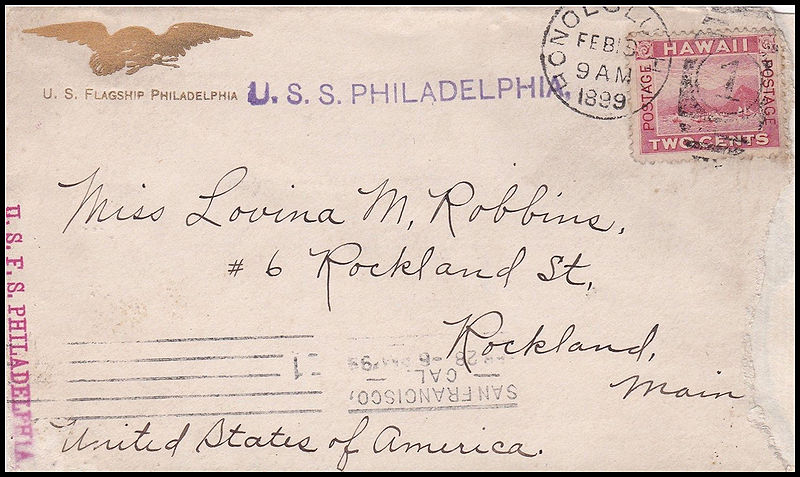 U. S. FLAGSHIP PHILADELPHIA
U. S. S. PHILADELPHIA.
HONOLULU
FEB
9 AM
1899
HAWAII
POSTAGE
POSTAGE
TWO CENTS
1
Miss Lovina M. Robbins,
# 6 Rockland St,
Rockland,
Main
United States of America.
U.S.F.S. PHILADELPHIA
SAN FRANCISCO,
CAL.
1